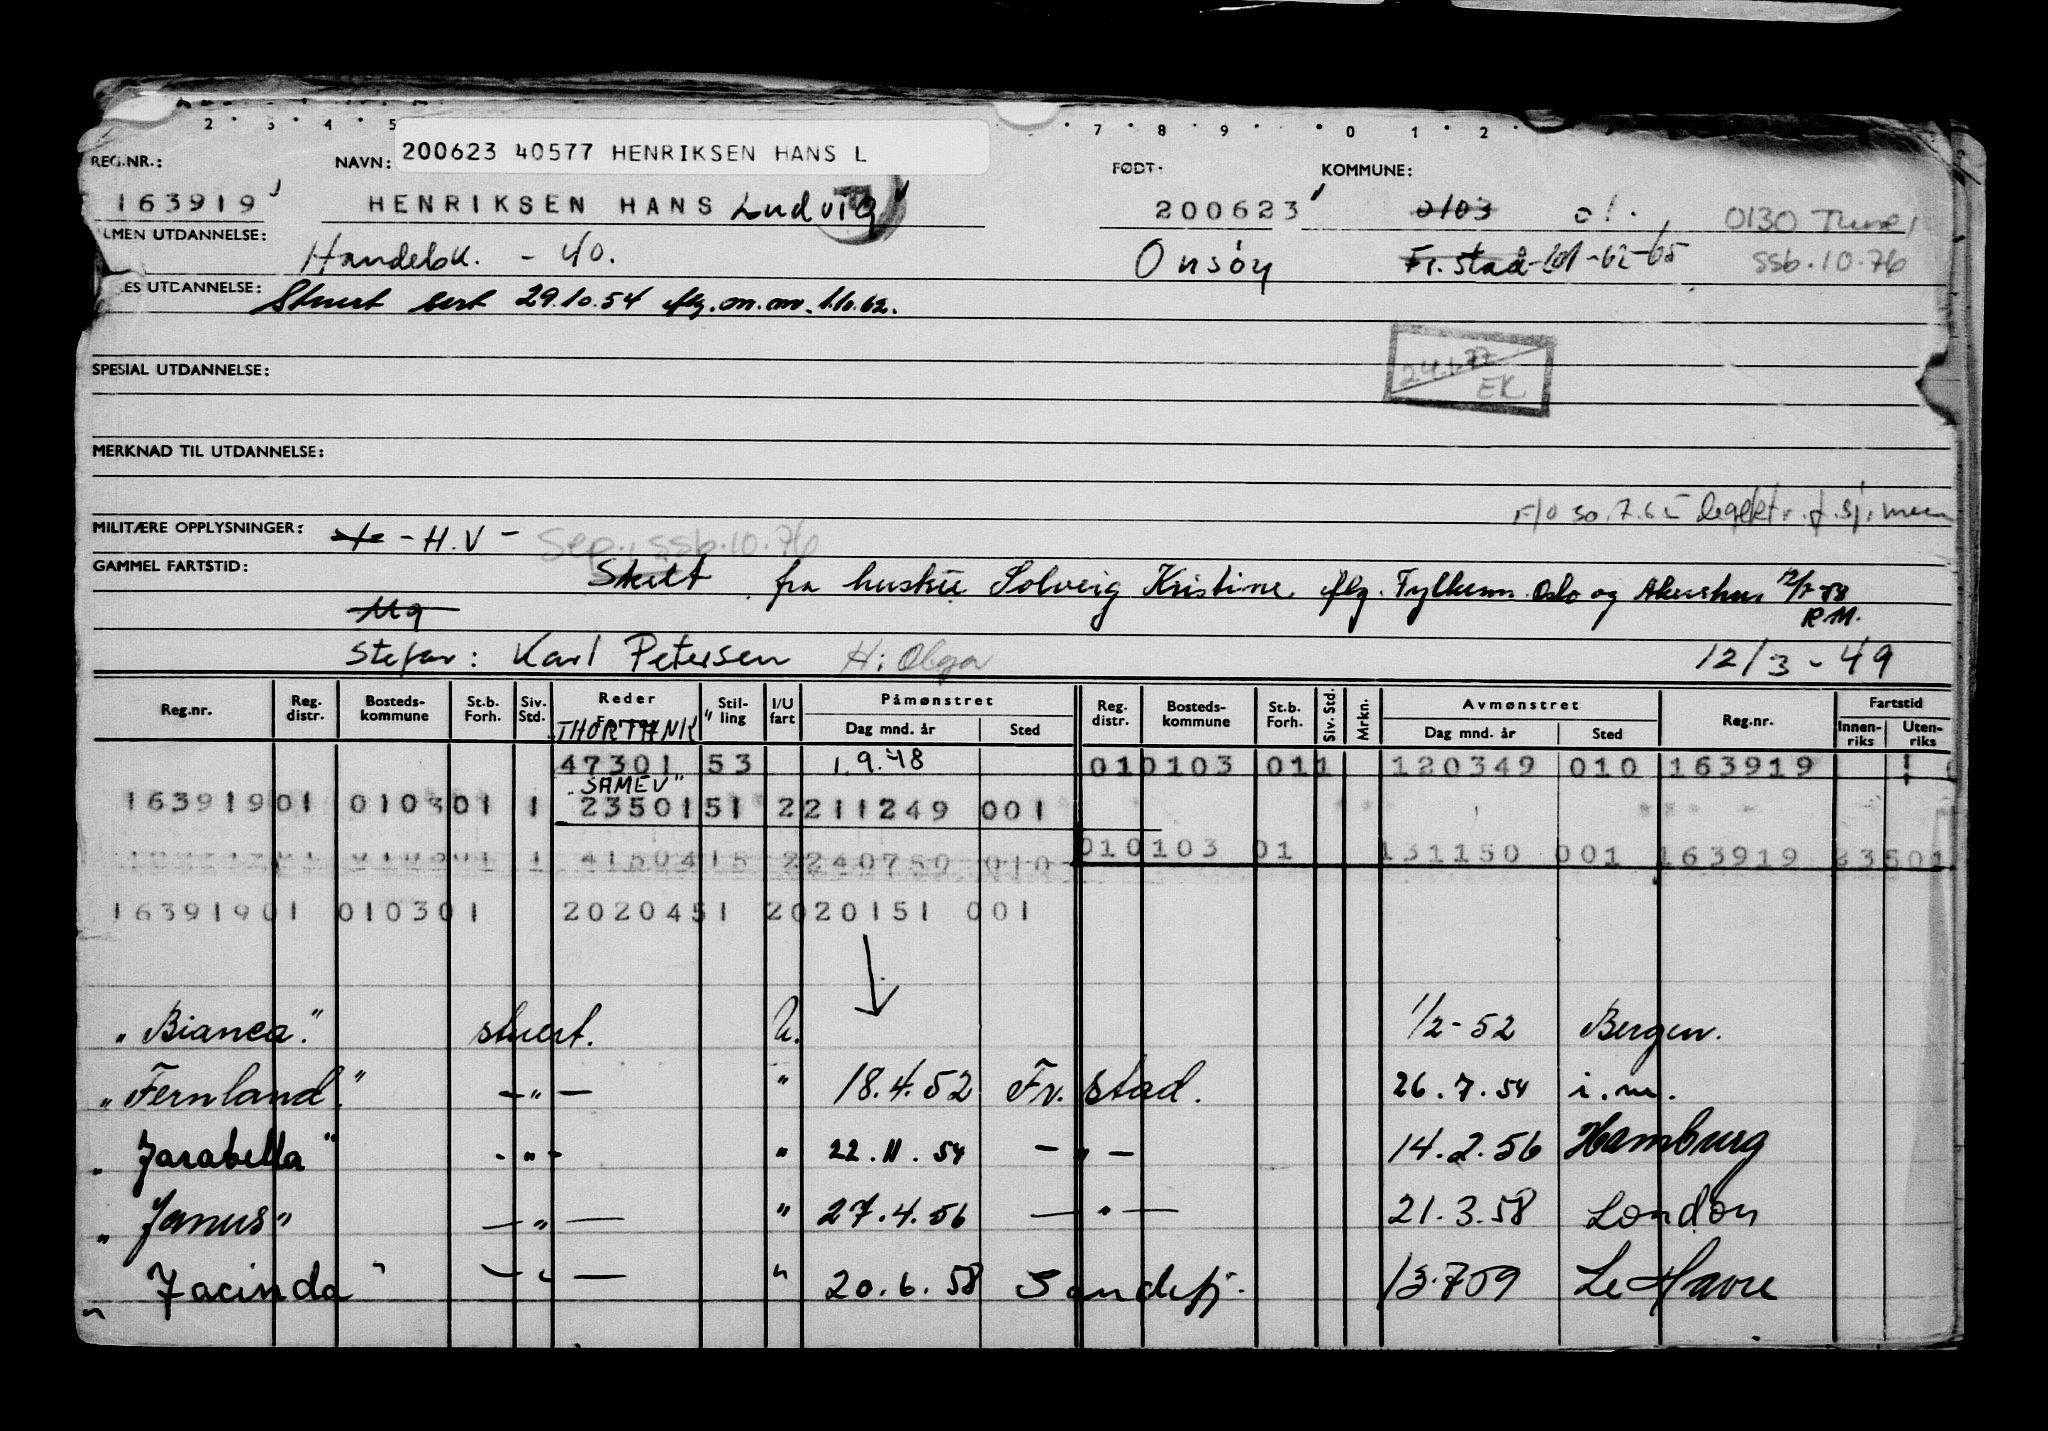 2 · 3 · 4 · 5 · 7 · 8 · 9 · 0 1 · 2 ·
200623 40577 HENRIKSEN HANS L
REG.NR.: NAVN: FØDT: KOMMUNE:
163919 HENRIKSEN HANS Ludvig 200623 0103 01. 0130 Tune
LMEN UTDANNELSE: Handelsk. - 40. Onsøy Fr.stad -62-65 ssb.10.76
ES UTDANNELSE: Stuert sert 29.10.54 eflg. m.m. 1.10.62.
24.1.77 EK
SPESIAL UTDANNELSE:
MERKNAD TIL UTDANNELSE:
F/O 30.7.65 legeekt. f. sj.menn
MILITÆRE OPPLYSNINGER: - H.V - Sep., ssb.10.76
GAMMEL FARTSTID: Skilt fra hustru Solveig Kristine eflg. Fylkesm. Oslo og Akershus 12/2-58
Ug R.M.
Stefar: Karl Petersen H: Olga 12/3-49
Reg.nr. Reg. distr. Bosteds- kommune St.b. Forh. Siv. Std. Reder Stil- ling I/U fart Påmønstret Dag mnd. år Sted Reg. distr. Bosteds- kommune St.b. Forh. Siv. Std. Mrkn. Avmønstret Dag mnd. år Sted Reg.nr. Fartstid Innen- riks Uten- riks
"THORSHVK"
47301 53 1.9.48 010103 011 120349 010 163919
"SAMEV"
16391901 010301 1 2350151 2211249 001
010103 01 131150 001 163919 23501
1 4150415 2240750 010
16391901 010301 2020451 2020151 001
"Bianca" stuert. U. 1/2-52 Bergen.
"Fernland" -"- " 18.4.52 Fr.stad. 26.7.54 i.m.
"Jarabella" -"- " 22.11.54 -"- 14.2.56 Hamburg
"Janus" -"- " 27.4.56 -"- 21.3.58 London
"Jacinda" -"- " 20.6.58 Sandefj. 13.759 Le Havre